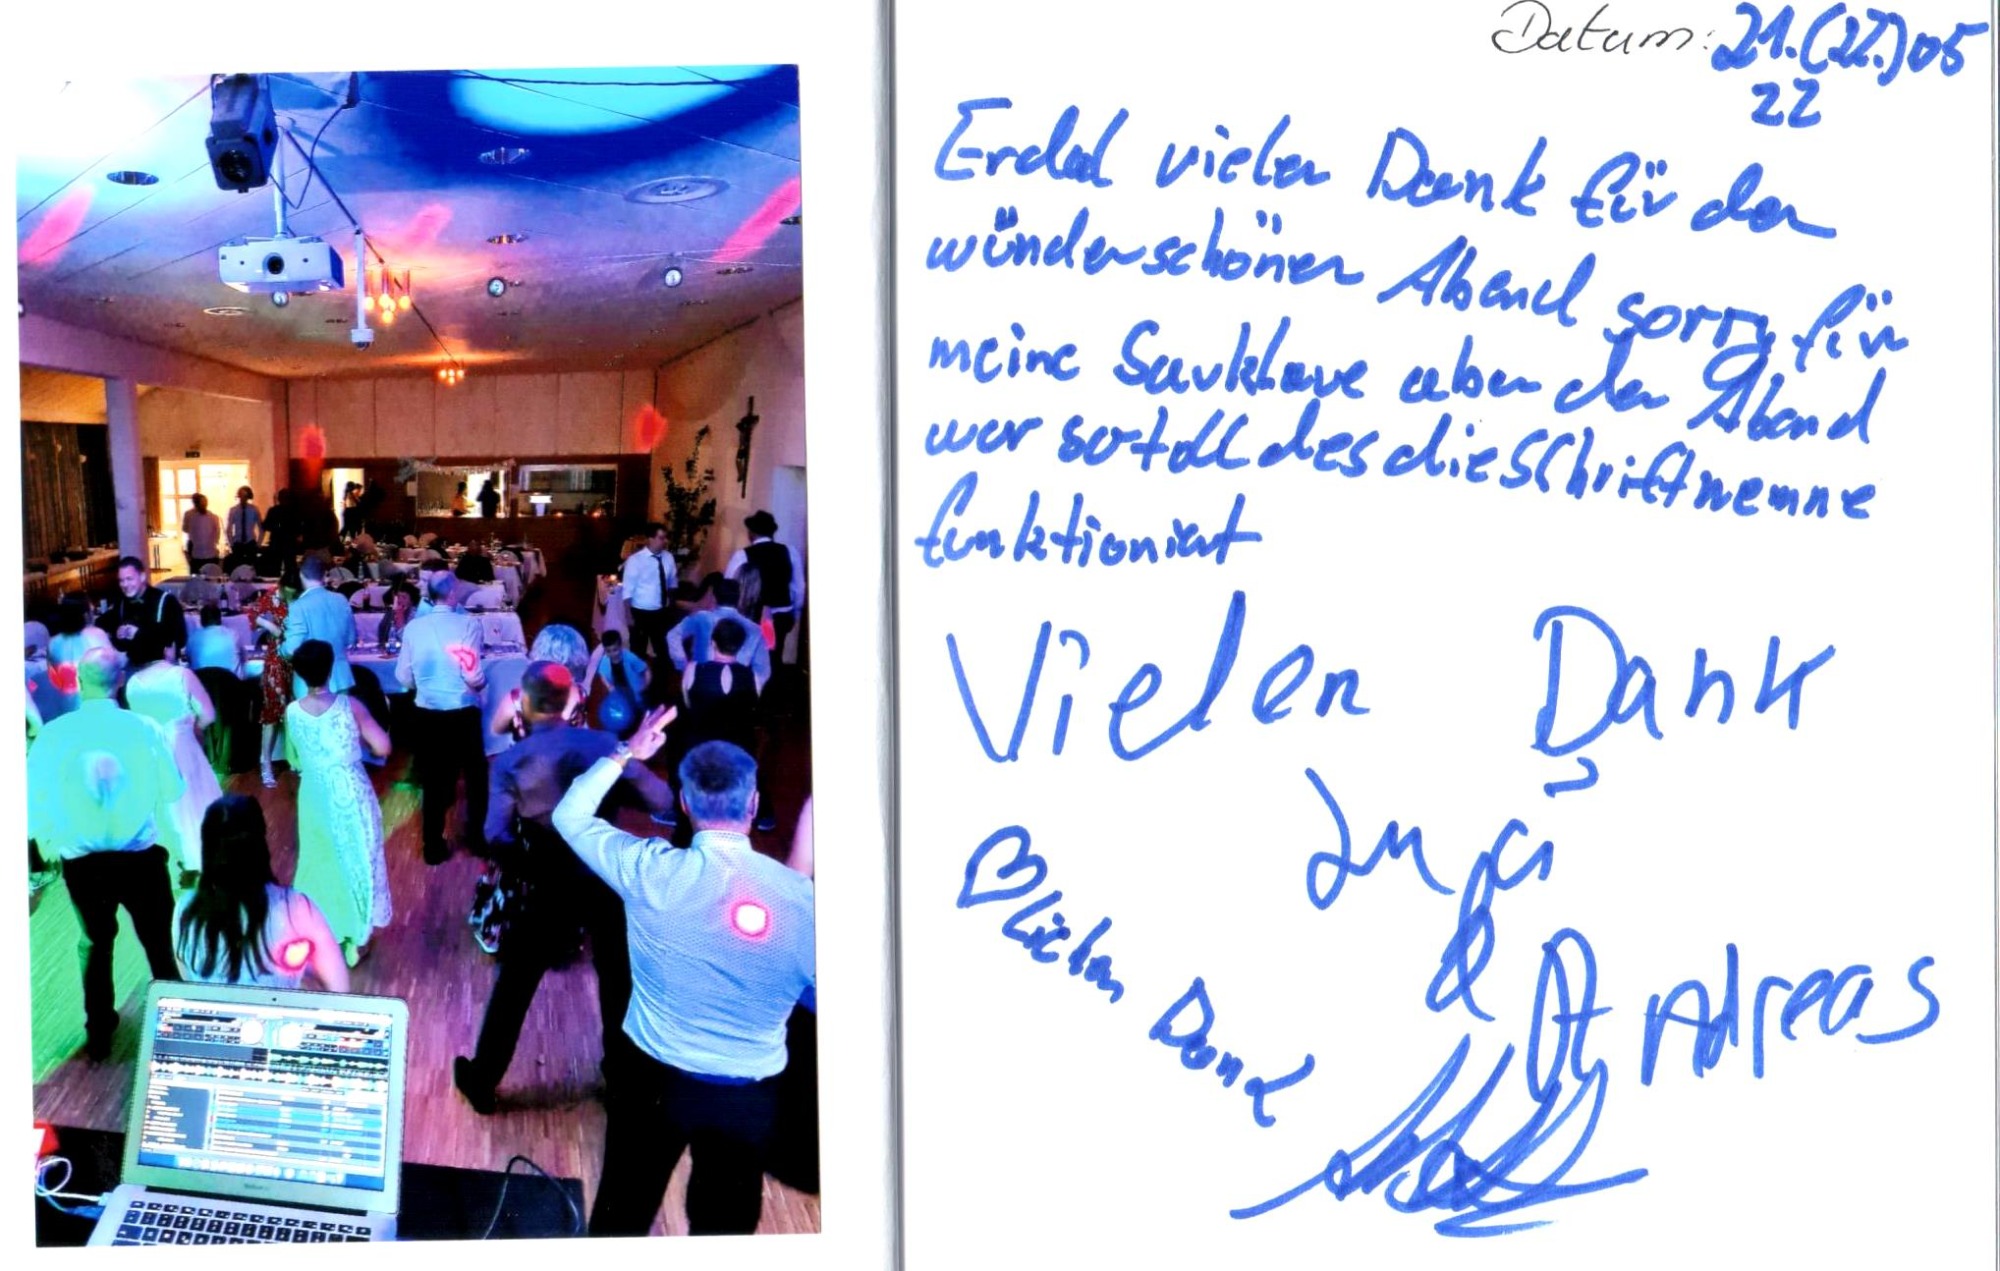 Datum: 21.(22.)05
22
Erdal vielen Dank für den
wünderschönen Abend sorry für
meine Sauklaue aber der Abend
war so toll des die Schrift nemne
funktioniert
Vielen Dank
&
Andreas
lichen Dank